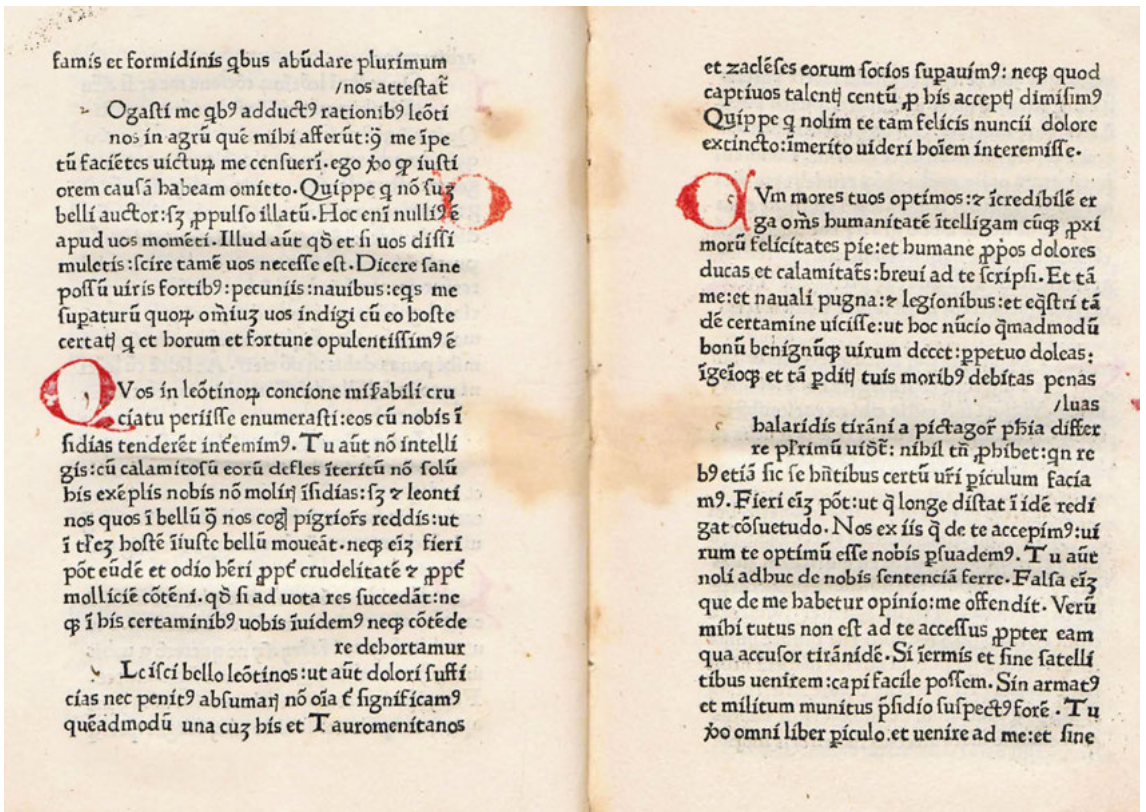 famis et formidinis qbus abūdare plurimum
/nos attestat̄
Ogasti me qbꝰ adductꝰ rationibꝰ leōti
nos in agrū quē mihi afferūt:ꝯ̄ me īpe
tū faciētes uictuꝝ me censuerī. ego ꝟo ꝙ iusti
orem causā habeam omitto. Quippe q nō suꝫ
belli auctor: sꝫ ꝓpulso illatū. Hoc enī nulliꝰ ē
apud uos momēti. Illud aūt qḋ et si uos dissi
muletis: scire tamē uos necesse est. Dicere sane
possū uiris fortibꝰ: pecuniis: nauibus: eqs me
suꝑaturū quoꝝ om̄iuꝫ uos indigi cū eo hoste
certatꝭ q et horum et fortune opulentissimꝰ ē
QVos in leōtinoꝝ concione misꝑabili cru
ciatu periisse enumerasti: eos cū nobis ī
sidias tenderēt intēmimꝰ. Tu aūt nō intelli
gis: cū calamitosū eorū defles īteritū nō solū
his exēplis nobis nō molirꝭ īsidias: sꝫ ⁊ leonti
nos quos ī bellū ꝯ̄ nos cogꝭ pigriors̄ reddis: ut
ī tr̄eꝫ hostē īiuste bellū moueāt. neqꝫ eīꝫ fieri
pōt eūdē et odio hēri ꝓpt̄ crudelitatē ⁊ ꝓpt̄
molliciē cōtēni. qḋ si ad uota res succedāt: ne
qꝫ ī his certaminibꝰ uobis īuidemꝰ neqꝫ cōtēde
re dehortamur
Lcisci bello leōtinos: ut aūt dolori suffi
cias nec penitꝰ absumarꝭ nō oīa t̄ significamꝰ
quēadmodū una cuꝫ his et Tauromenitanos
et zaclēses eorum socios suꝑauimꝰ: neqꝫ quod
captiuos talentꝭ centū ꝓ his acceptꝭ dimisimꝰ
Quippe q nolim te tam felicis nuncii dolore
extincto: īmerito uideri hoīem interemisse.
CVm mores tuos optimos: ⁊ īcredibilē er
ga om̄s humanitatē ītelligam cūqꝫ ꝓxi
morū felicitates pie: et humane ꝓpos dolores
ducas et calamitat̄s: breui ad te scripsi. Et tā
me: et nauali pugna: ⁊ legionibus: et eq̄stri tā
dē certamine uicisse: ut hoc nūcio qmadmodū
bonū benignūqꝫ uirum decet: ꝑpetuo doleas:
īgeīoqꝫ et tā ꝑditꝭ tuis moribꝰ debitas penas
/luas
halaridis tirāni a pictagor̄ phīa differ
re pr̄imū uiḋt̄: nihil tn̄ ꝓhibet: qn re
bꝰ etiā sic se hn̄tibus certū ur̄i ꝑiculum facia
mꝰ. Fieri eīꝫ pōt: ut q̄ longe distat ī idē redi
gat cōsuetudo. Nos ex iis q̄ de te accepimꝰ: ui
rum te optimū esse nobis ꝑsuademꝰ. Tu aūt
noli adhuc de nobis sentenciā ferre. Falsa eīꝫ
que de me habetur opinio: me offendit. Verū
mihi tutus non est ad te accessus ꝓpter eam
qua accusor tirānidē. Si īermis et sine satelli
tibus uenirem: capi facile possem. Sin armatꝰ
et militum munitus p̄sidio suspectꝰ forē. Tu
ꝟo omni liber ꝑiculo. et uenire ad me: et sine